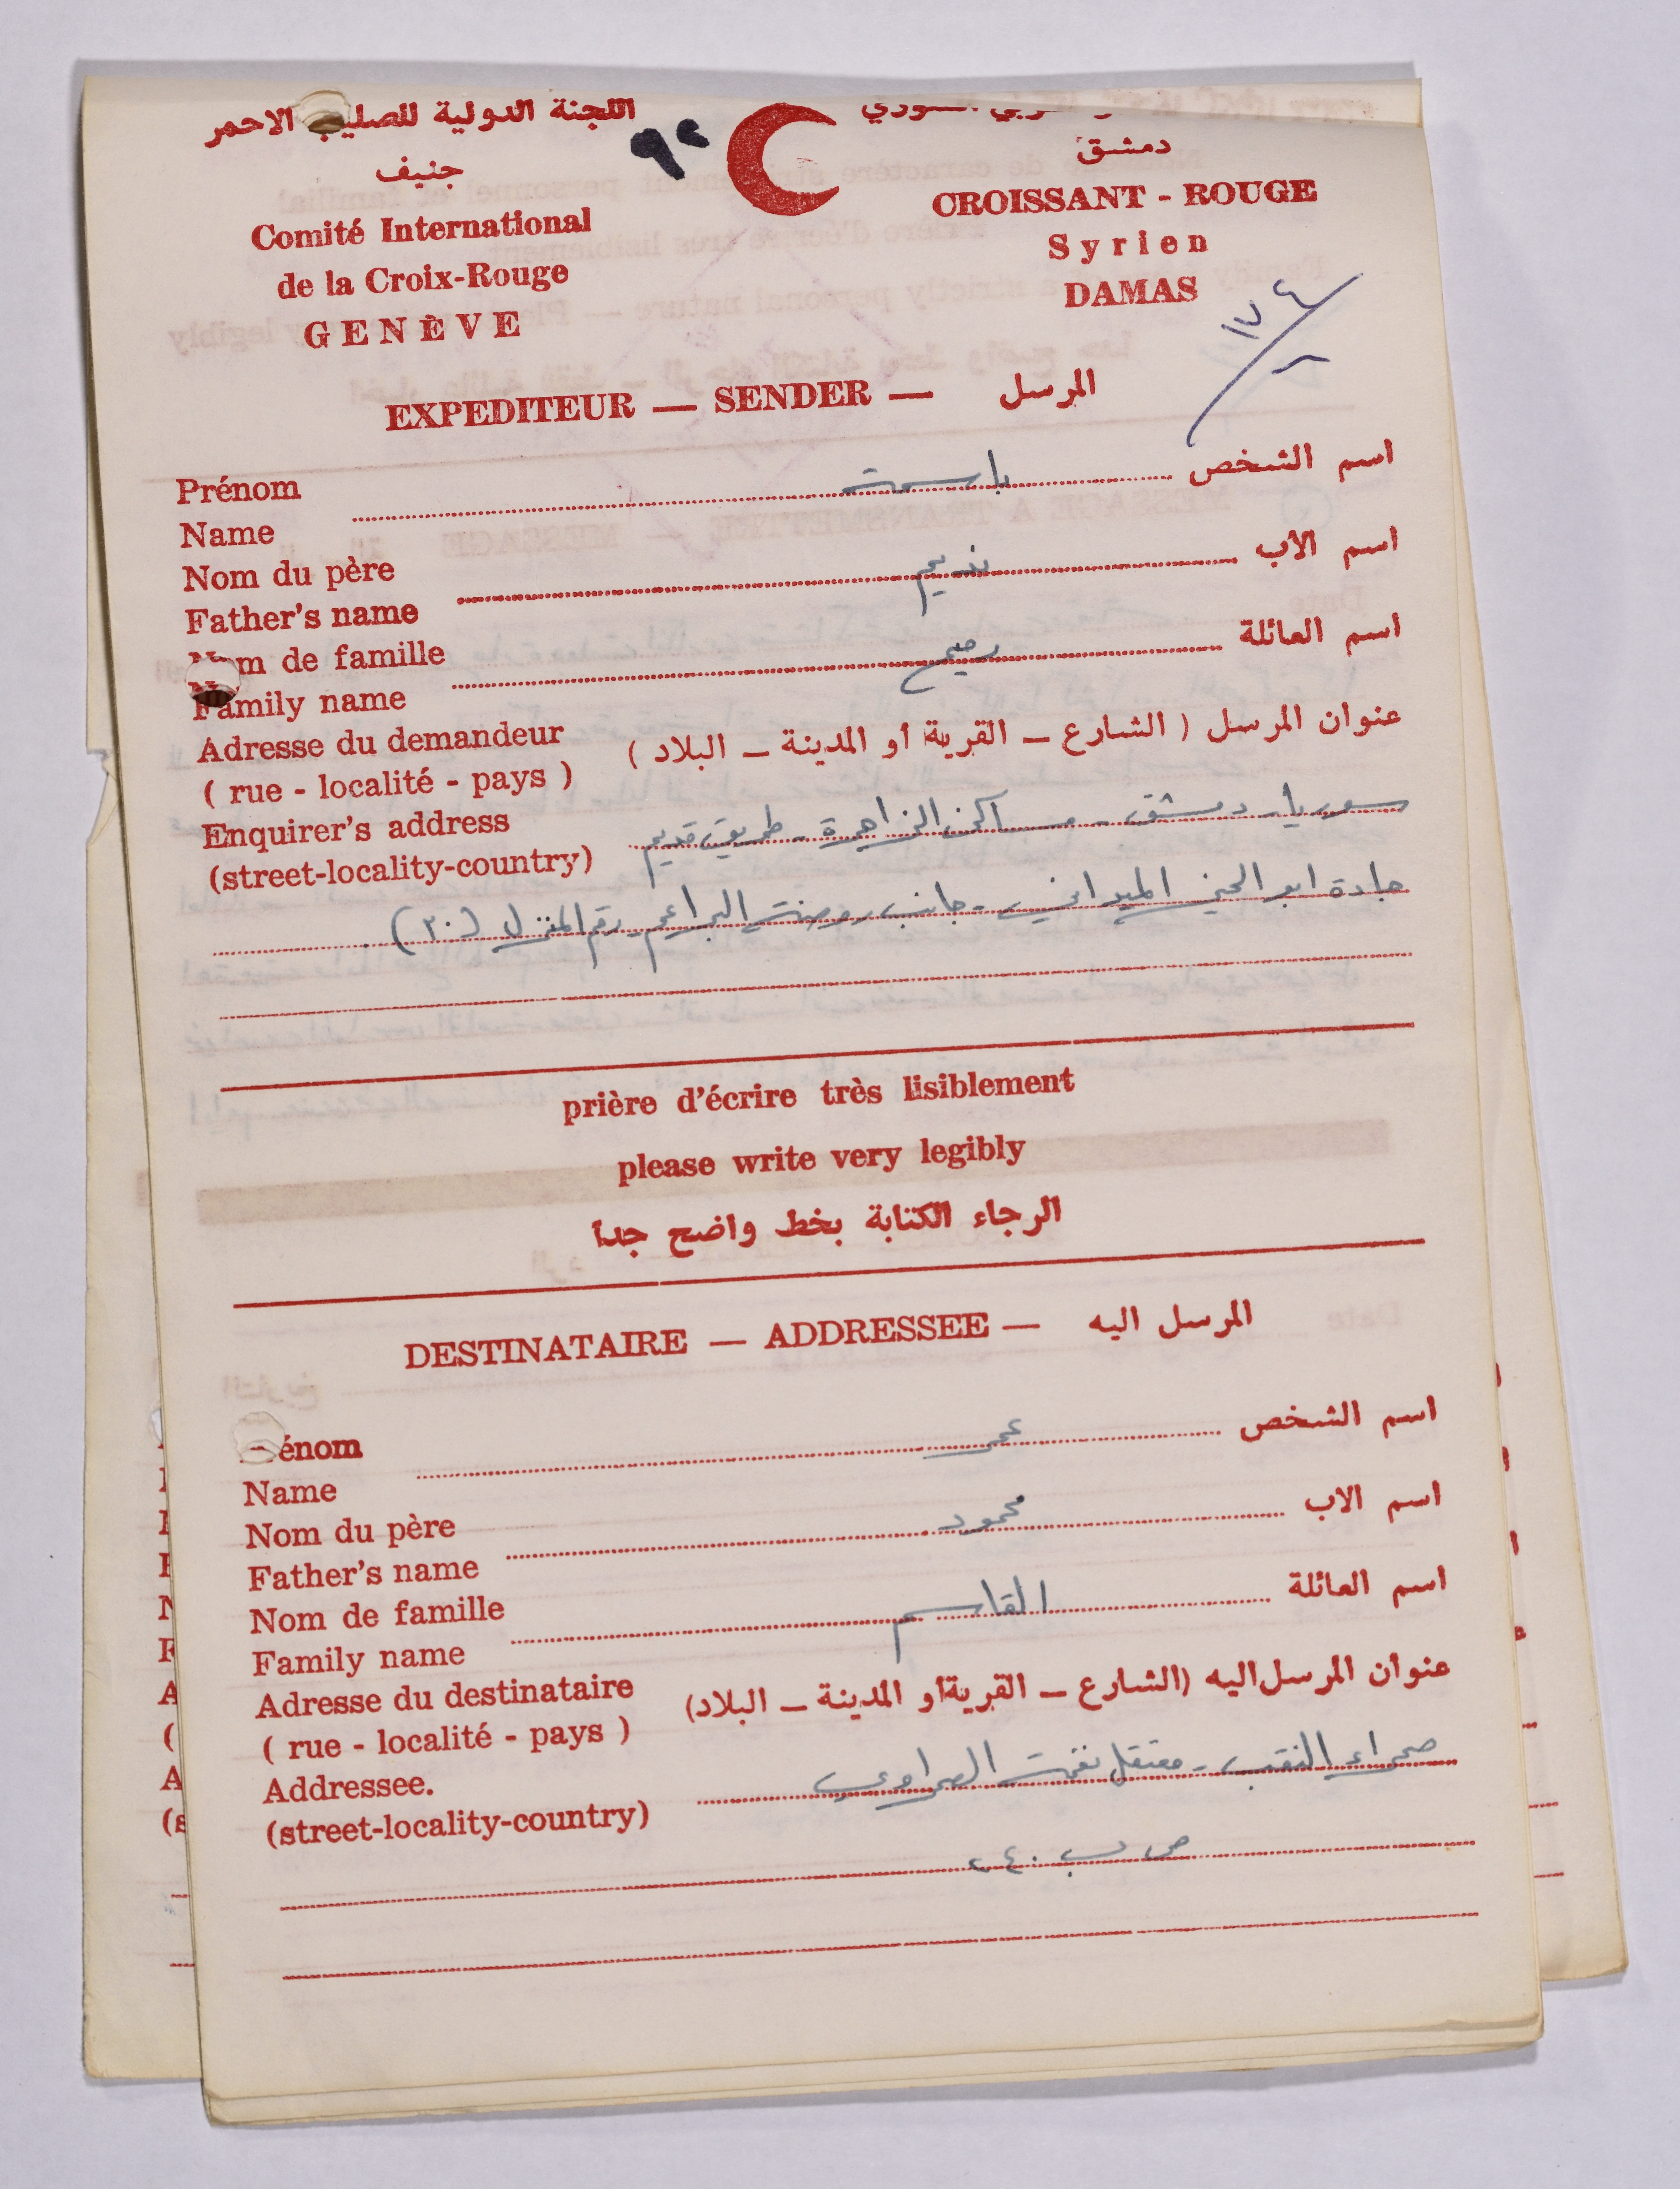 اللجنة الدولية للصليب الاحمر
جنيف
Comité International
de la Croix-Rouge
GENÈVE
٩٢
دمشق
CROISSANT - ROUGE
Syrien
DAMAS
١٧٤
٢
EXPEDITEUR — SENDER — المرسل
Prénom باسمة اسم الشخص
Name
Nom du père نديم اسم الاب
Father's name
Nom de famille اسم العائلة
Family name
Adresse du demandeur عنوان المرسل ( الشارع – القرية أو المدينة – البلاد )
( rue - localité - pays )
Enquirer's address سوريا - دمشق - مساكن الزاهرة - طريق قديم
(street-locality-country)
جادة ابو الميداني - جانب روضة البراعم - رقم المنزل (٣٠)
prière d'écrire très lisiblement
please write very legibly
الرجاء الكتابة بخط واضح جداً
DESTINATAIRE — ADDRESSEE — المرسل اليه
énom عمر اسم الشخص
Name
Nom du père محمود اسم الاب
Father's name
Nom de famille القاسم اسم العائلة
Family name
Adresse du destinataire عنوان المرسل اليه (الشارع – القرية أو المدينة – البلاد)
( rue - localité - pays )
Addressee. صحراء النقب - معتقل نفحة الصحراوي
(street-locality-country)
ص ب ٢٤٠